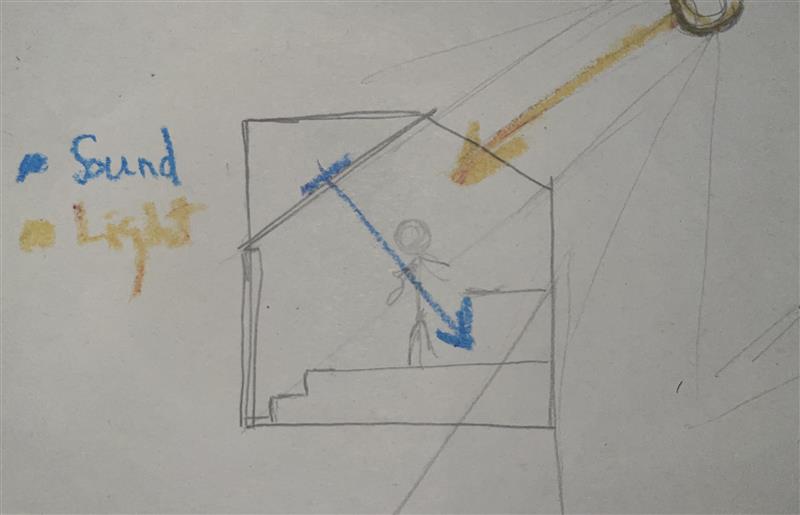 Sound
Light